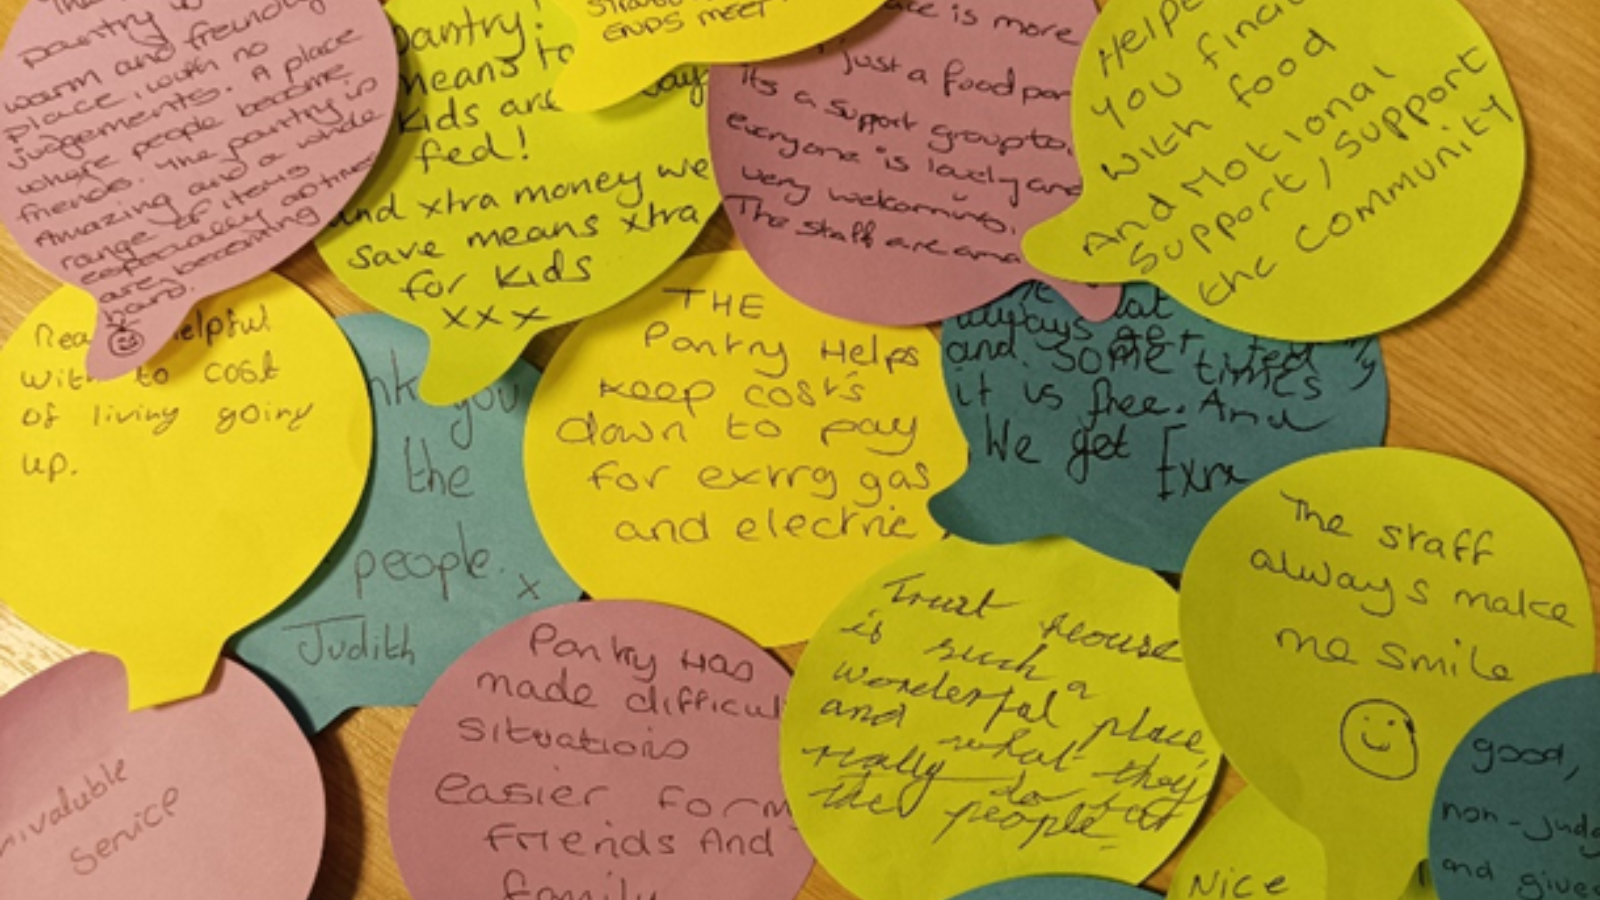 pantry is
warm and friendly
place, with no
judgements. A place
where people become
friends. The pantry is
Amazing and a whole
range of items
especially as times
are becoming
hard.
pantry!
means to
kids are
fed!
and xtra money we
save means xtra
for kids
xxx
ENDS MEET
is more
just a food
its a support group to,
everyone is lovely and
very welcoming.
The staff are
Helps
you
with food
And Motional
Support/Support
the community
Really helpful
with to cost
of living going
up.
you
the
people. x
Judith
THE
Pantry Helps
keep cost's
down to pay
for exrrg gas
and electric
always get
and some times
it is free. And
We get Exra
The staff
always make
me smile
Pantry Has
made
situations
easier for
friends And
family
Trust House
is such a
wonderful place,
and what they
really do for
the people.
invaluble
Service
good,
non-
and gives
Nice